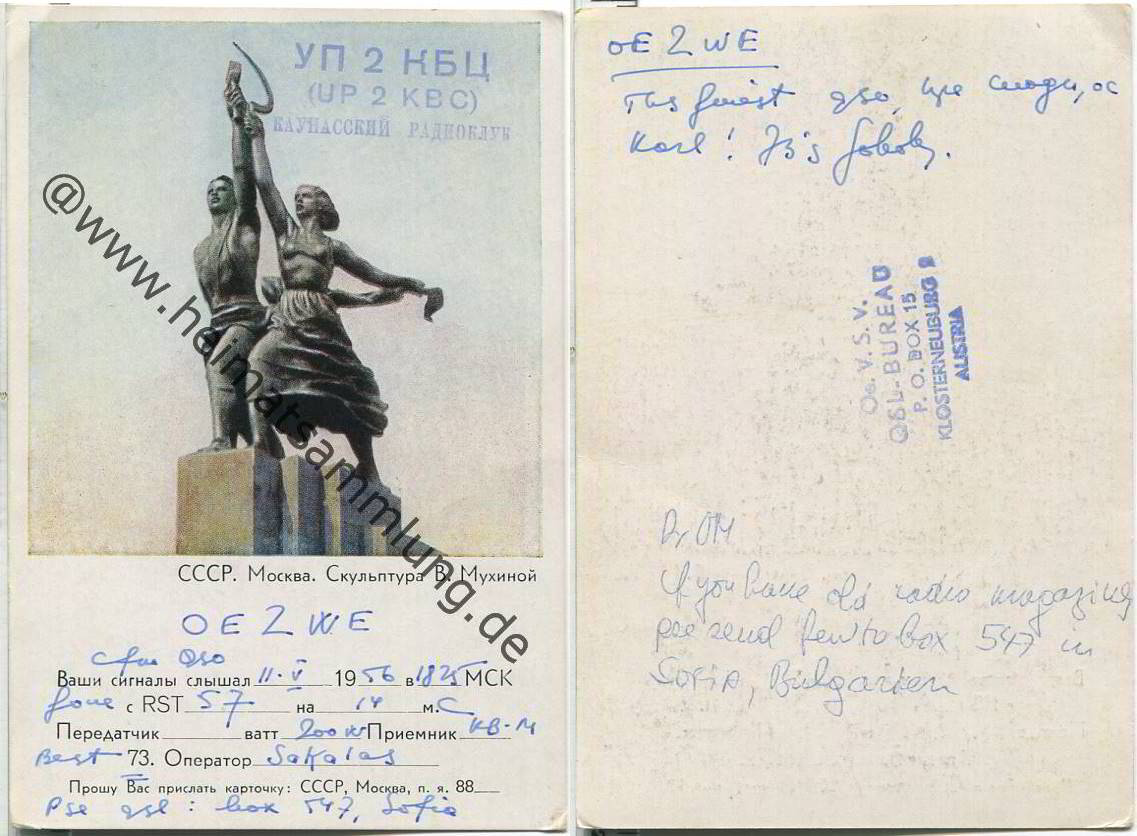 УП 2 КБЦ
(UP 2 KBC)
КАУНАССКИЙ РАДИОКЛУБ
@www.heimatsammlung.de
СССР. Москва. Скульптура В. Мухиной
OE 2 WE
cfm QSO
Ваши сигналы слышал 11.V 1956 в 1825 МСК
fone с RST 57 на 14 м.С
Передатчик ватт 200 w Приемник КВ-М
Best 73. Оператор Sakalas
Прошу Вас прислать карточку: СССР, Москва, п. я. 88
Pse qsl: box 547, Sofia
OE 2 WE
qso,
Karl! 73's
Oe. V. S. V.
QSL-BUREAU
P. O. BOX 15
KLOSTERNEUBURG 2
AUSTRIA
Dr OM
If you have old radio magazines
pse send few to box 547 in
Sofia, Bulgarien